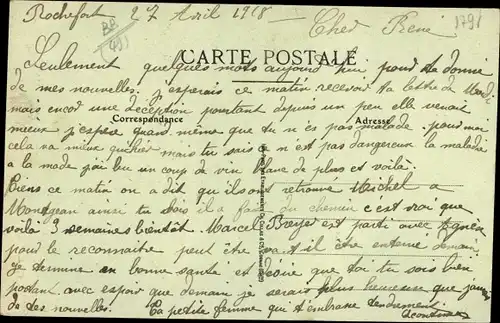 Rochefort 27 Avril 1918
Cher René
1791
CARTE POSTALE
Seulement quelques mots aujourd'hui pour te donné
de mes nouvelles. j'esperais ce matin recevoir ta lettre de
mais encor une déception pourtant depuis un peu elle venait
Correspondance
Adresse
mieux j'espère quand même que tu n'es pas malade. pour moi
cela va mieux mais tu sais ce n'est pas dangereux la maladie
a la mode j'ai bu un coup de vin blanc de plus et voilà.
Tiens ce matin on a dit qu'ils ont retrouvé Michel a
Montjean ainsi tu vois il a fait du chemin c'est vrai que
voilà 3 semaines bientôt. Marcel est parti avec
pour le reconnaitre peut être va t il être enterré demain.
Je termine en bonne santé et désire que toi tu sois bien
portant avec espoir que demain je serais plus heureuse que
de tes nouvelles. Ta petite femme qui t'embrasse tendrement